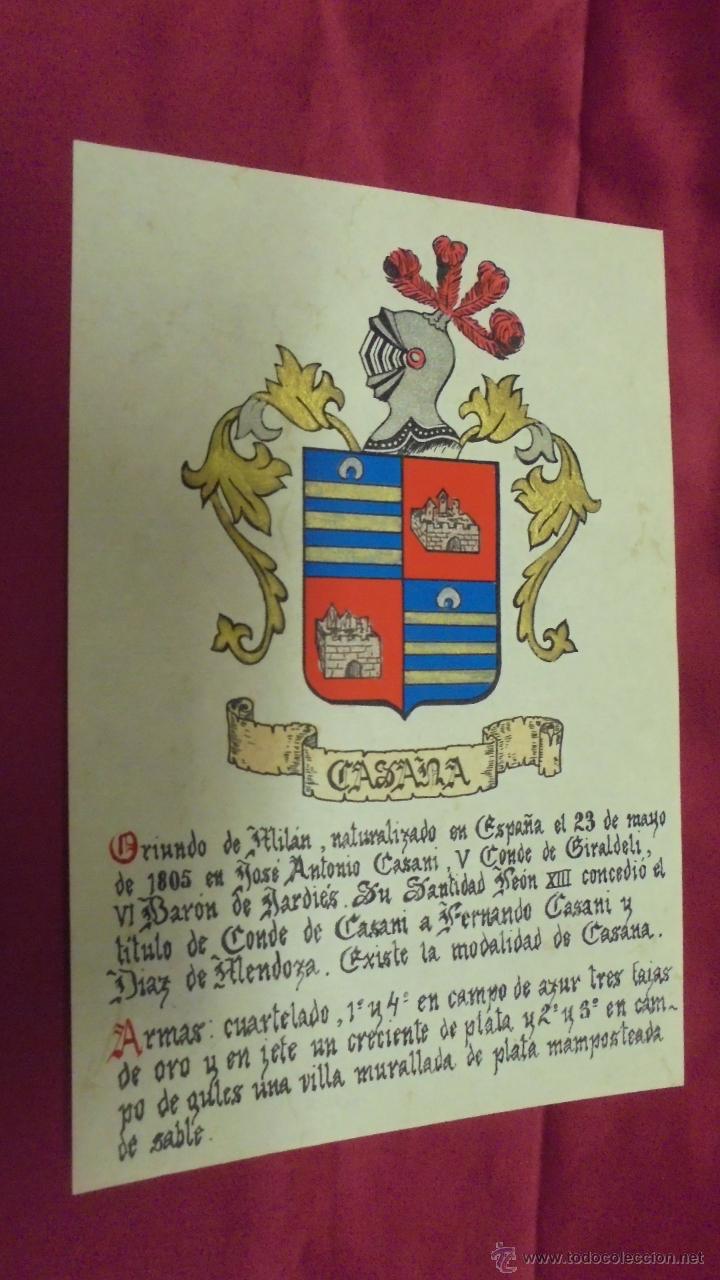 CASANA
Oriundo de Milán, naturalizado en España el 23 de mayo
de 1805 en José Antonio Casani, V Conde de Giraldeli,
VI Baron de Lardiés. Su Santidad León XIII concedió el
titulo de Conde de Casani a Fernando Casani y
Diaz de Mendoza. Existe la modalidad de Casana.
Armas: cuartelado, 1º y 4º en campo de azur tres fajas
de oro y en jefe un creciente de plata y 2º y 3º en cam-
po de gules una villa murallada de plata mamposteada
de sable.
www.todocoleccion.net